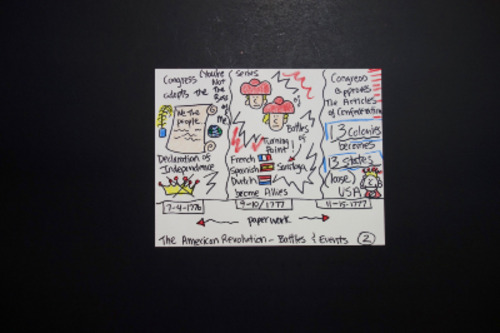 Congress
adopts the
(You're
Not
The
Boss
of
Me)
We the
people
Declaration of
Independence
7-4-1776
Series
of
Battles
Turning
Point!
French
Spanish
Dutch
Saratoga
become Allies
9-10/1777
Congress
approves
The Articles
of Confederation
13 colonies
becomes
13 states
(loose)
USA
11-15-1777
paperwork
The American Revolution - Battles & Events 2